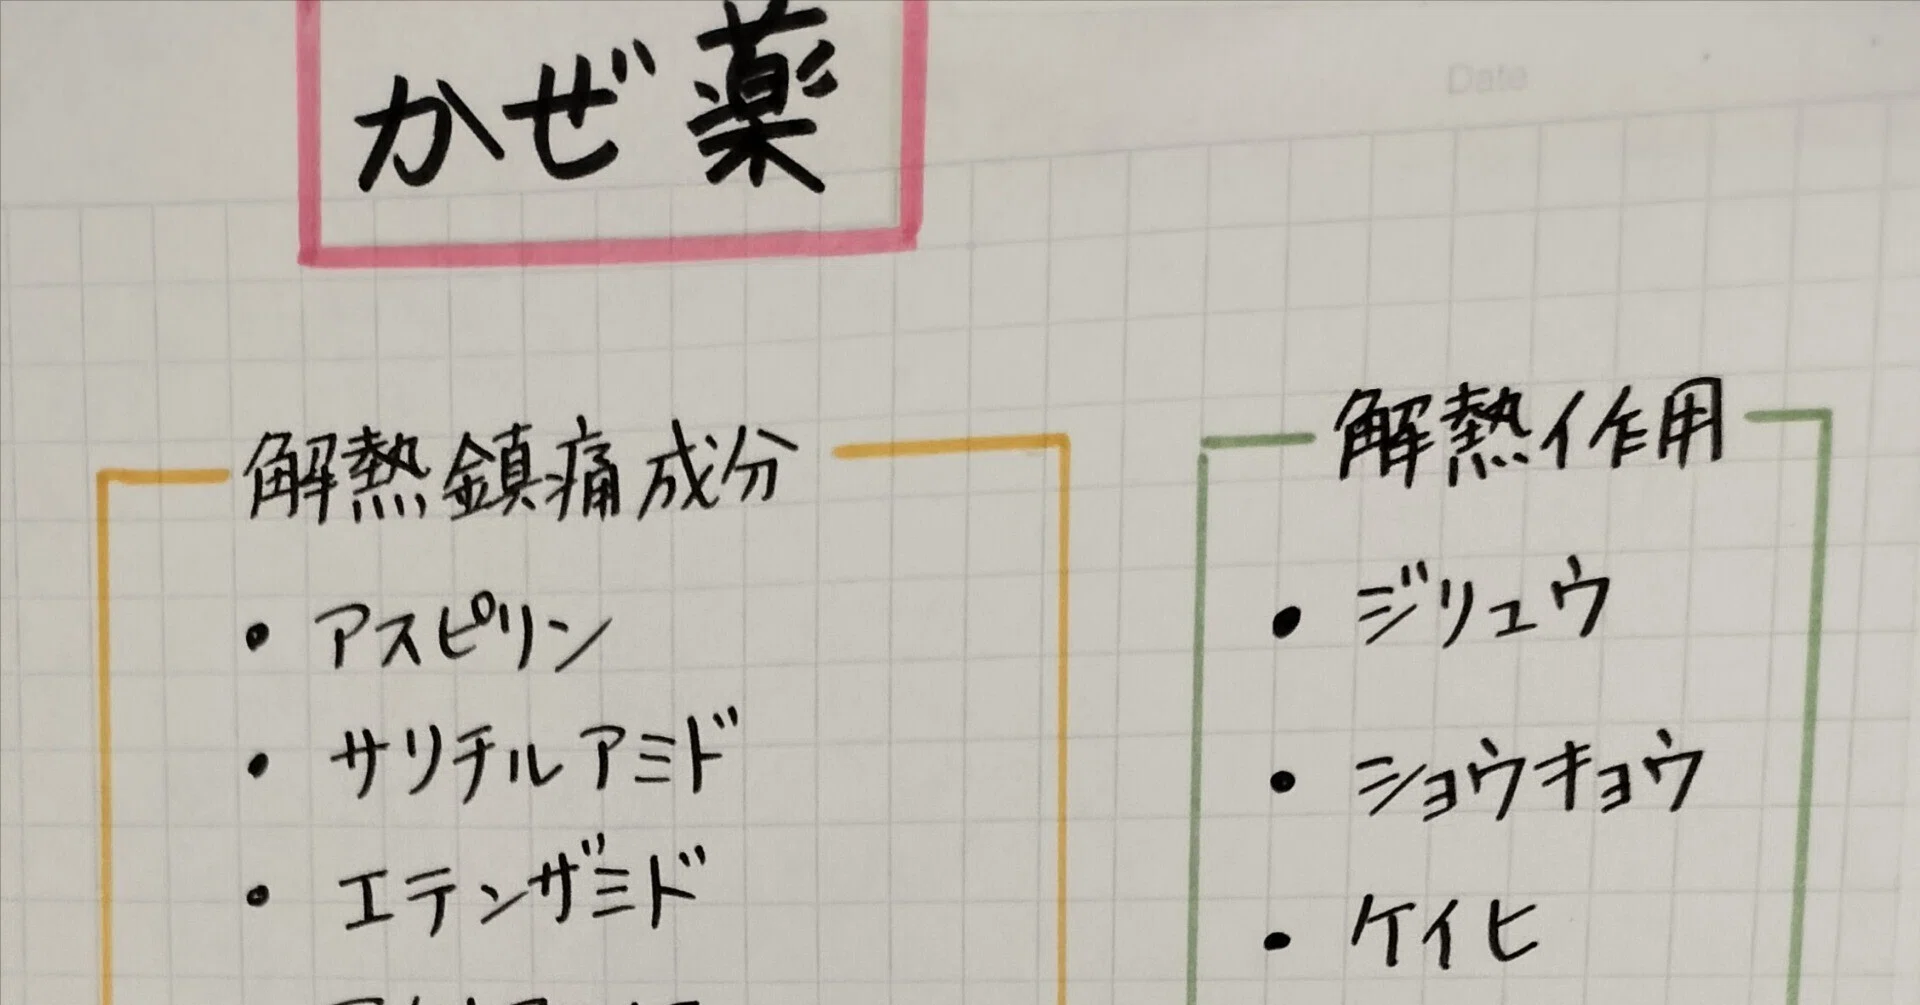 かぜ薬
Date
解熱鎮痛成分
・アスピリン
・サリチルアミド
・エテンザミド
解熱作用
・ジリュウ
・ショウキョウ
・ケイヒ